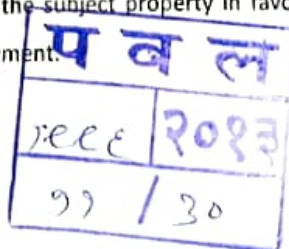 the subject property in favo
ment.
प व ल
२०१३
११ / ३०